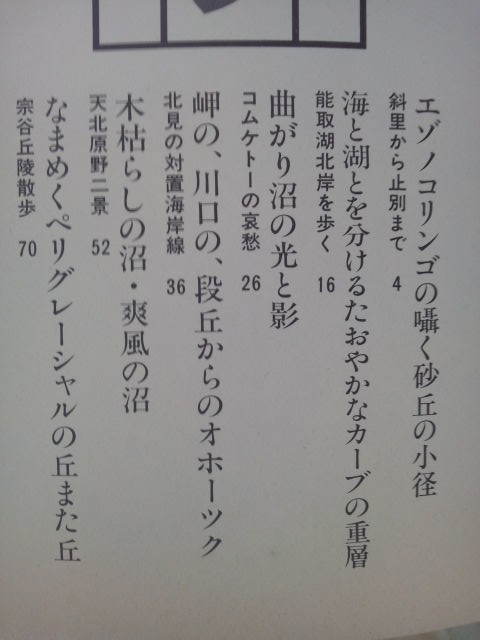 エゾノコリンゴの囁く砂丘の小径
斜里から止別まで 4
海と湖とを分けるたおやかなカーブの重層
能取湖北岸を歩く 16
曲がり沼の光と影
コムケトーの哀愁 26
岬の、川口の、段丘からのオホーツク
北見の対置海岸線 36
木枯らしの沼・爽風の沼
天北原野二景 52
なまめくペリグレーシャルの丘また丘
宗谷丘陵散歩 70